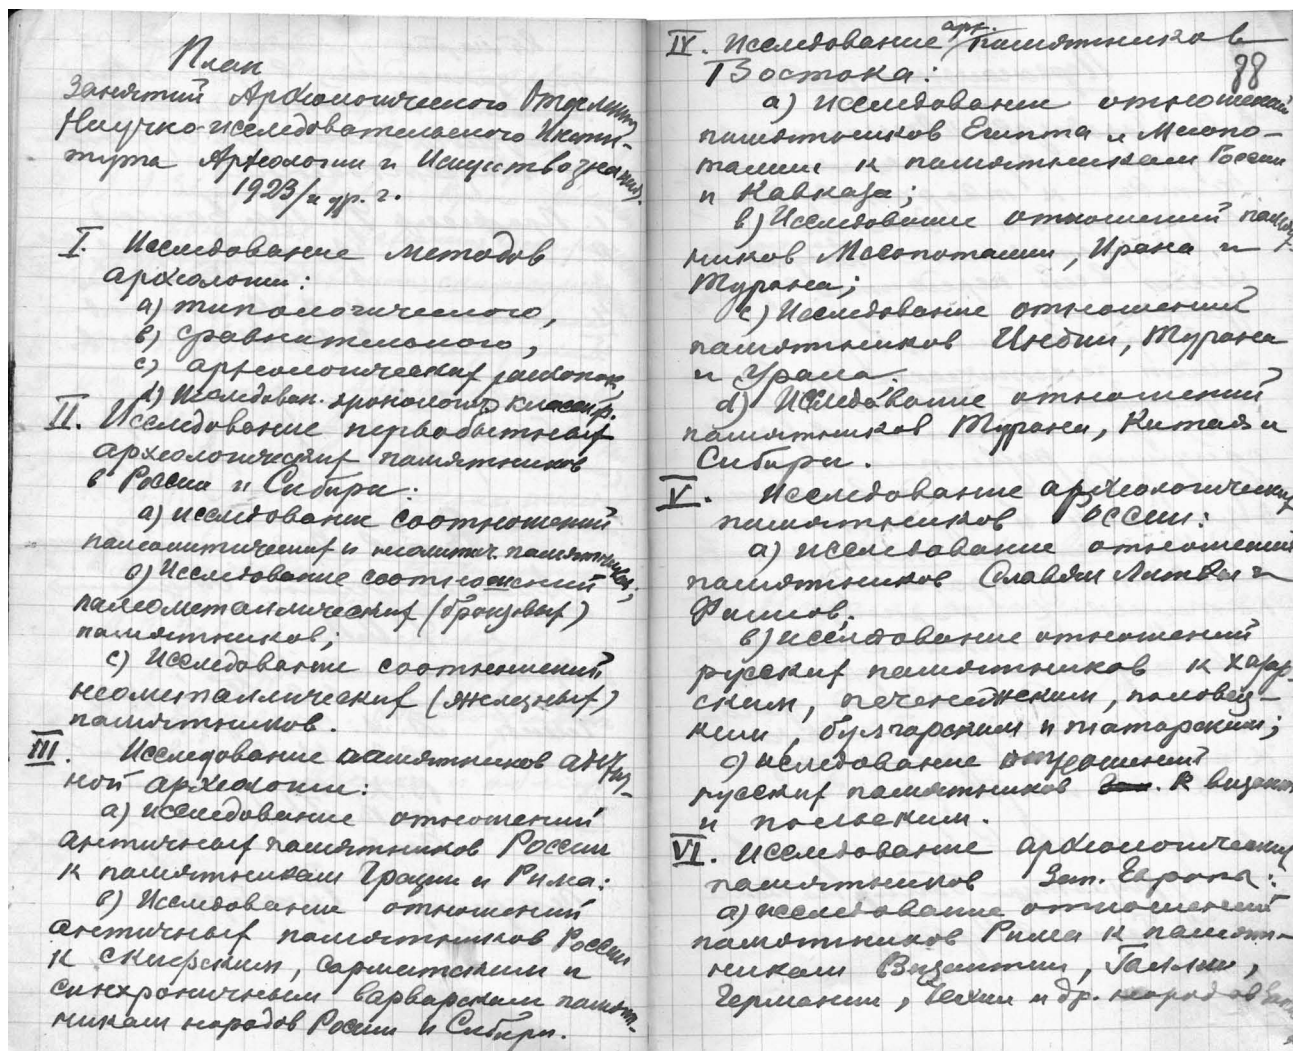 План
Занятий Археологического Отделения
Научно-исследовательского Инсти-
тута Археологии и Искусствознания
1923/и др. г.
I. Исследование методов
археологии:
а) типологического,
в) сравнительного,
с) археологических раскопок,
d) Исследован. хронолог. классиф.
II. Исследование первобытных
археологических памятников
в России и Сибири:
а) исследование соотношений
палеолитических и неолитич. памятников;
в) Исследование соотношений
палеометаллических (бронзовых)
памятников;
с) Исследование соотношений
неометаллических (железных)
памятников.
III. Исследование памятников антич-
ной археологии:
а) исследование отношений
античных памятников России
к памятникам Греции и Рима:
в) Исследование отношений
античных памятников России
к скифским, сарматским и
синхроничным варварским памят-
никам народов России и Сибири.
IV. Исследование арх. памятников
Востока:
88
а) исследование отношений
памятников Египта и Месопо-
тамии к памятникам России
и Кавказа;
в) Исследование отношений памят-
ников Месопотамии, Ирана и
Турана;
с) Исследование отношений
памятников Индии, Турана
и Урала.
d) Исследование отношений
памятников Турана, Китая и
Сибири.
V. Исследование археологических
памятников России:
а) исследование отношений
памятников Славян Литвы и
Финнов;
в) исследование отношений
русских памятников к хазар-
ским, печенежским, половец-
ким, булгарским и татарским;
с) иследование отношений
русских памятников к визант.
и польским.
VI. Исследование археологических
памятников Зап. Европы:
а) исследование отношений
памятников Рима к памят-
никам Византии, Галлии,
Германии, Чехии и др. народов